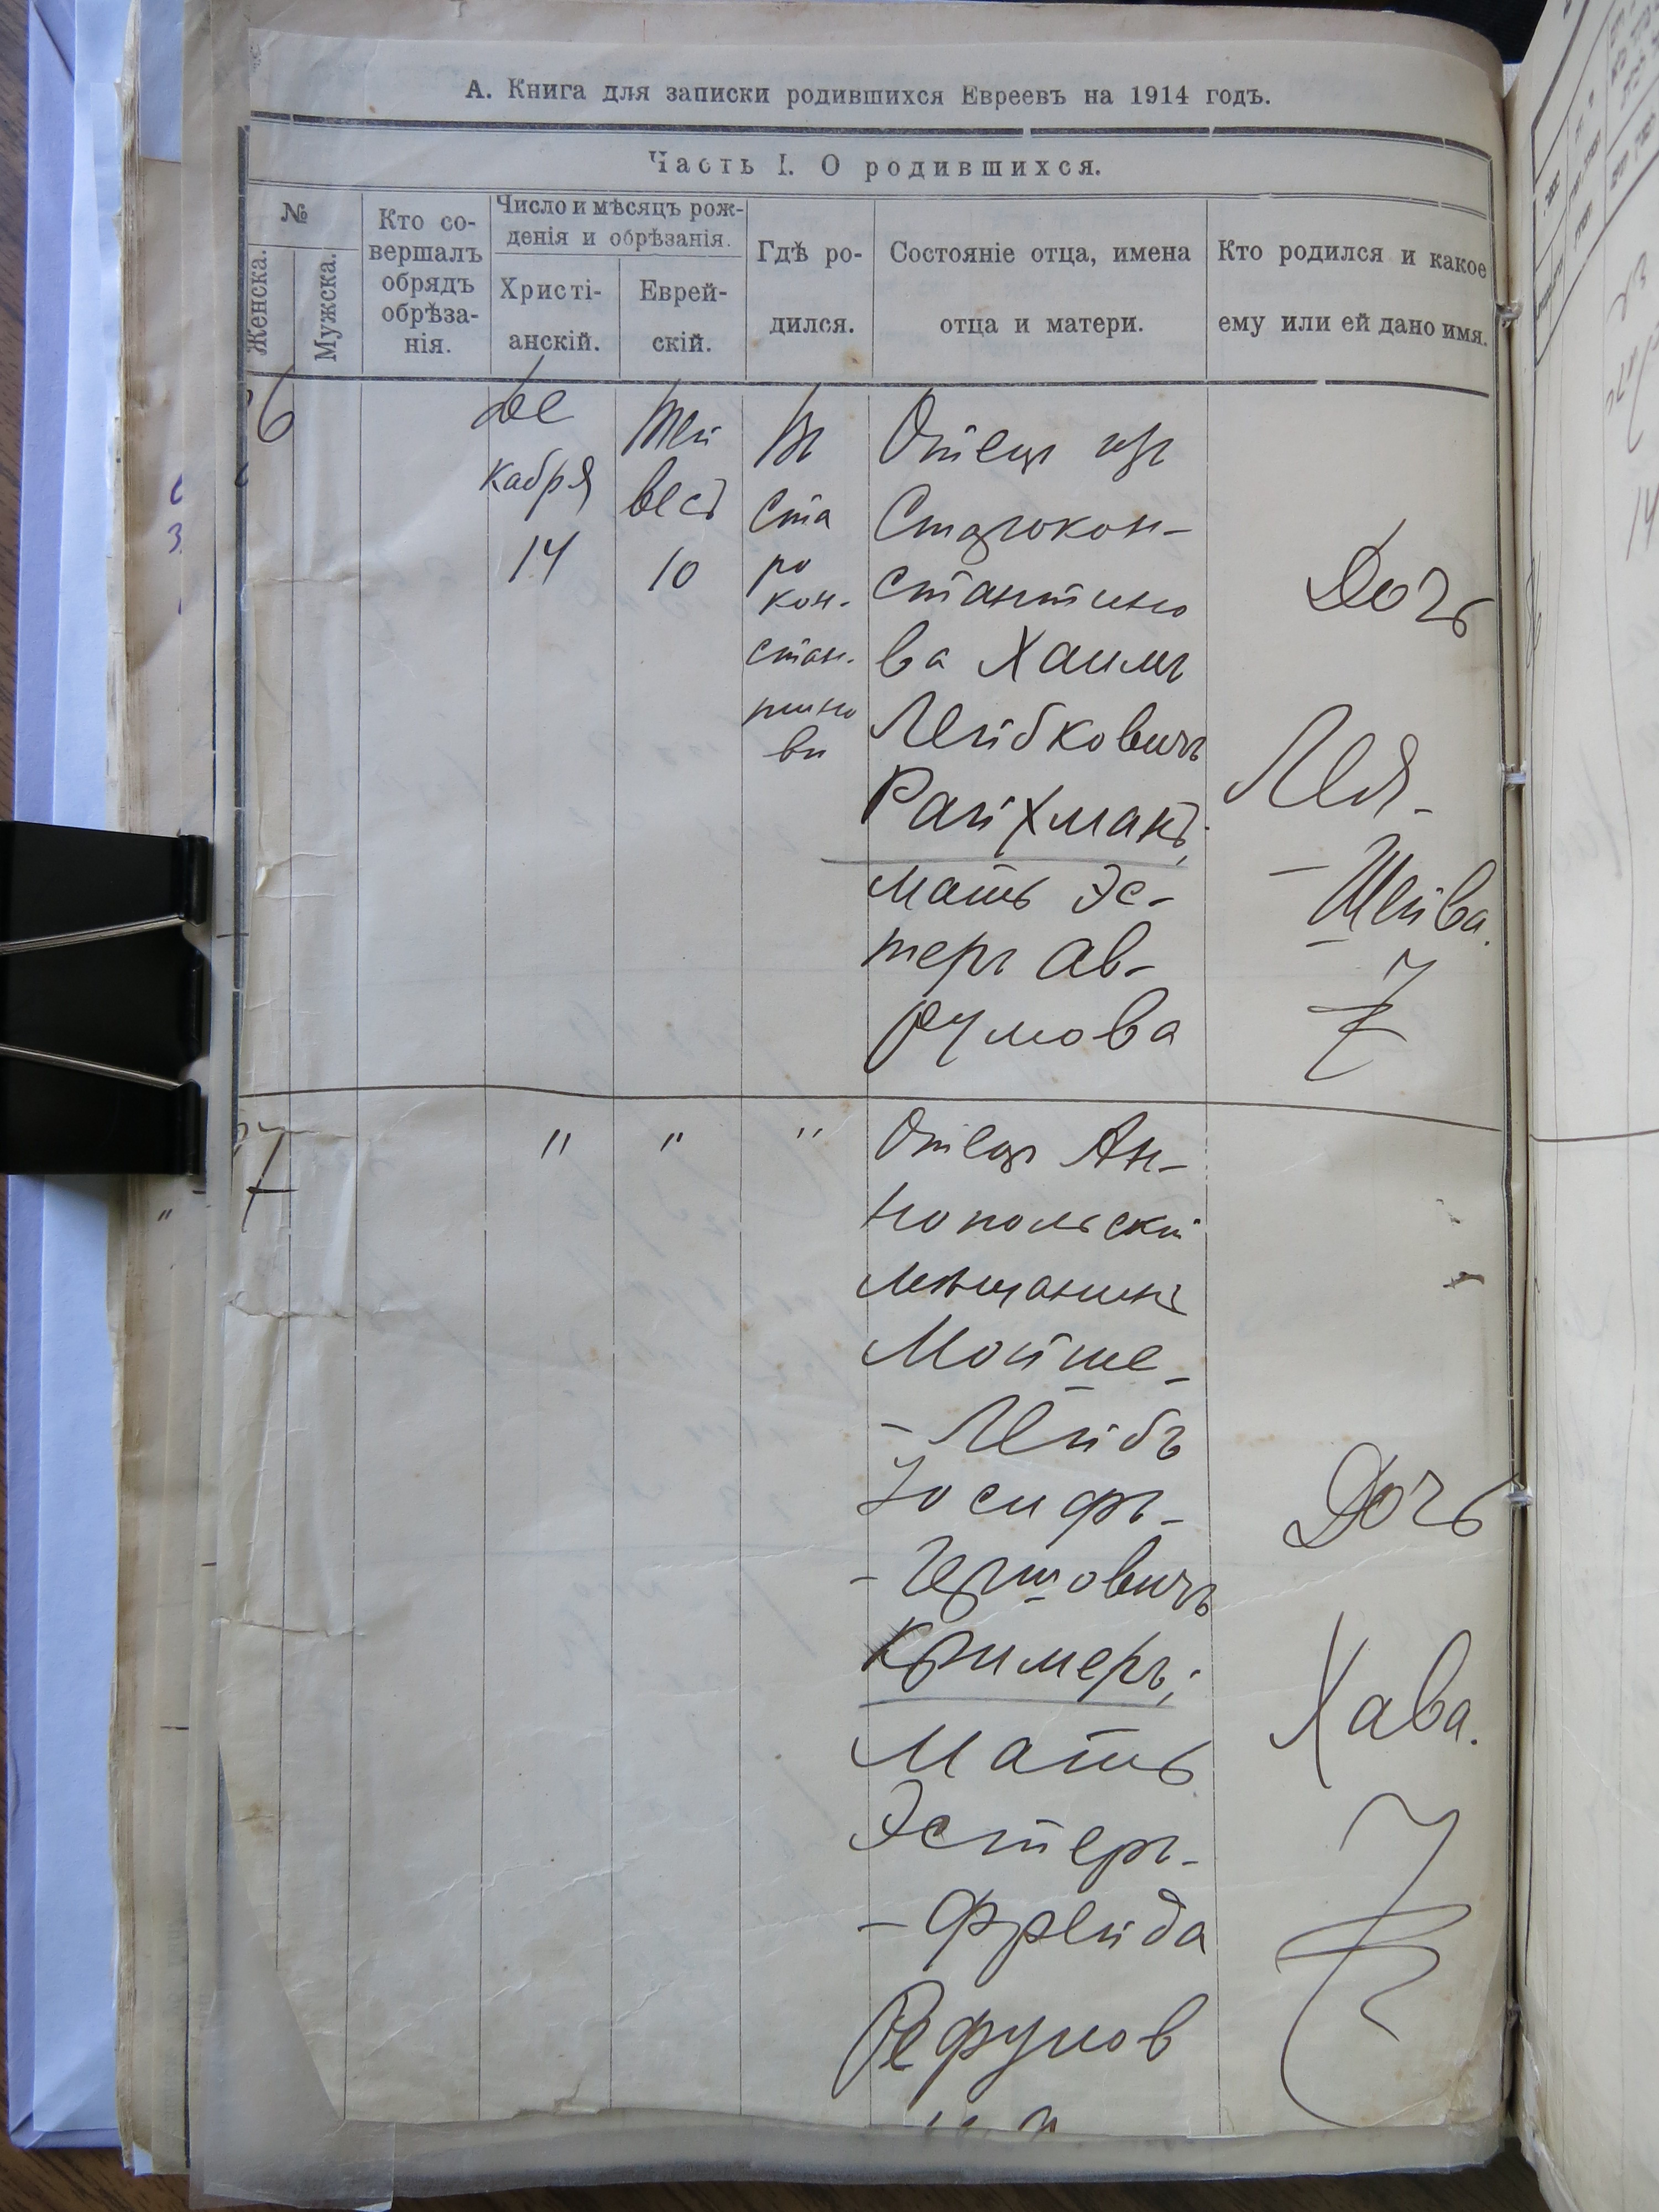 А. Книга для записки родившихся Евреевъ на 1914 годъ.
Часть I. О родившихся.
№
Женска.
Мужска.
Кто со-
вершалъ
обрядъ
обрѣза-
нія.
Число и мѣсяцъ рож-
денія и обрѣзанія.
Христі-
анскій.
Еврей-
скій.
Гдѣ ро-
дился.
Состояніе отца, имена
отца и матери.
Кто родился и какое
ему или ей дано имя.
6
Де
кабря
14
Тей
весъ
10
Въ
Ста
ро
кон-
стан-
тино
ви
Отецъ изъ
Старокон-
стантино
ва Хаимъ
Лейбковичъ
Райхманъ,
мать Эс-
теръ Ав-
румова
Дочь
Лея-
-Шейва.
7
"
"
"
Отецъ Ан-
нопольскій
мѣщанинъ
Мойше-
-Лейбъ
Іосифъ-
-Гершовичъ
Кримеръ;
Мать
Эстеръ-
-Фрейда
Рефулов
Дочь
Хава.